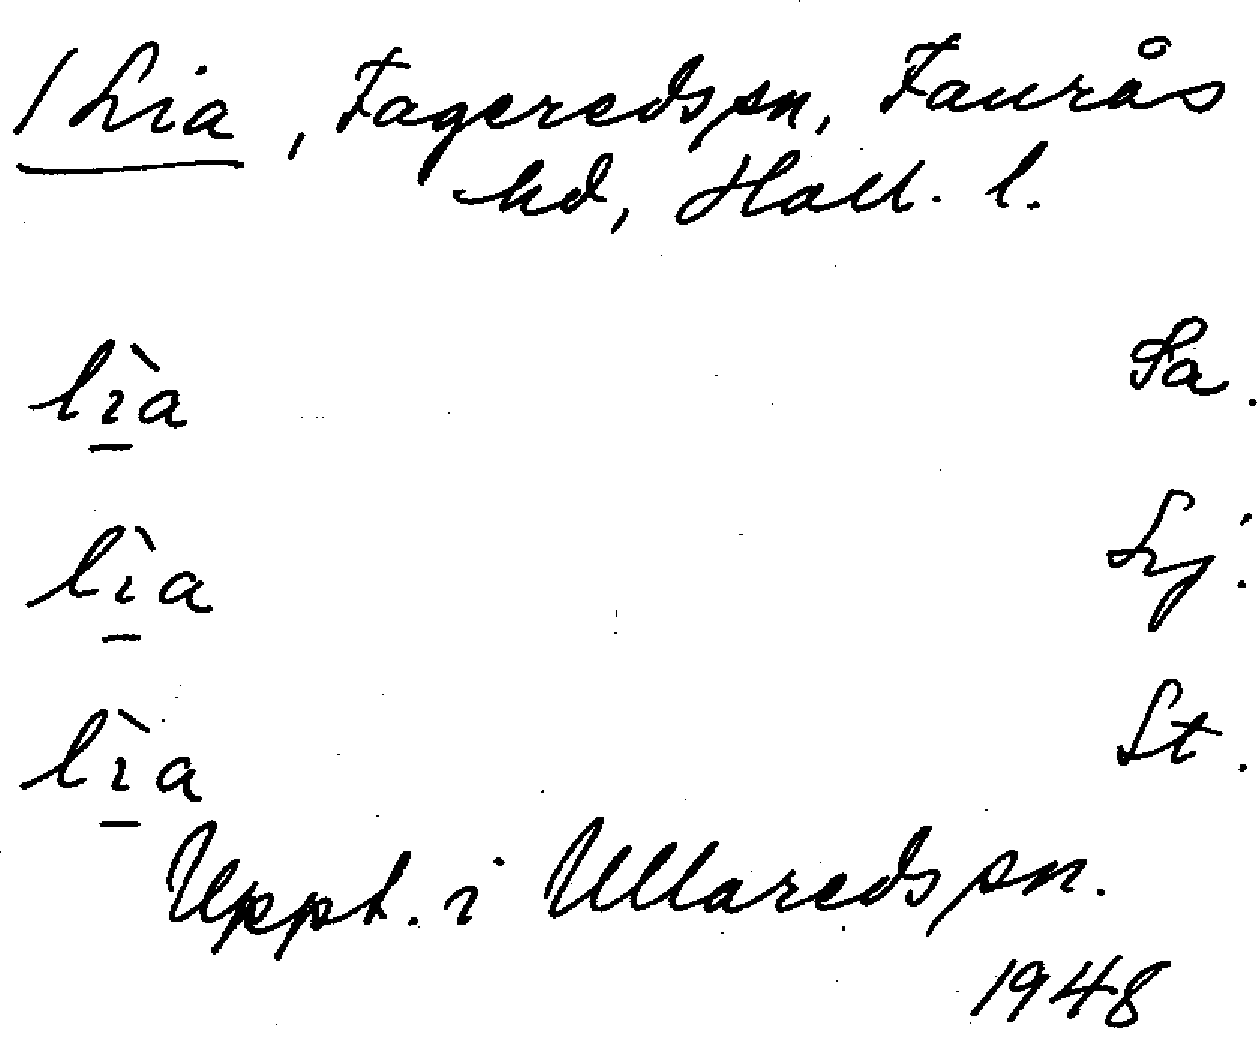 / Lia, Fagereds sn, Faurås
hd, Hall. l.
lìa Sa.
lìa Lj.
lìa St.
Uppt. i Ullareds sn.
1948